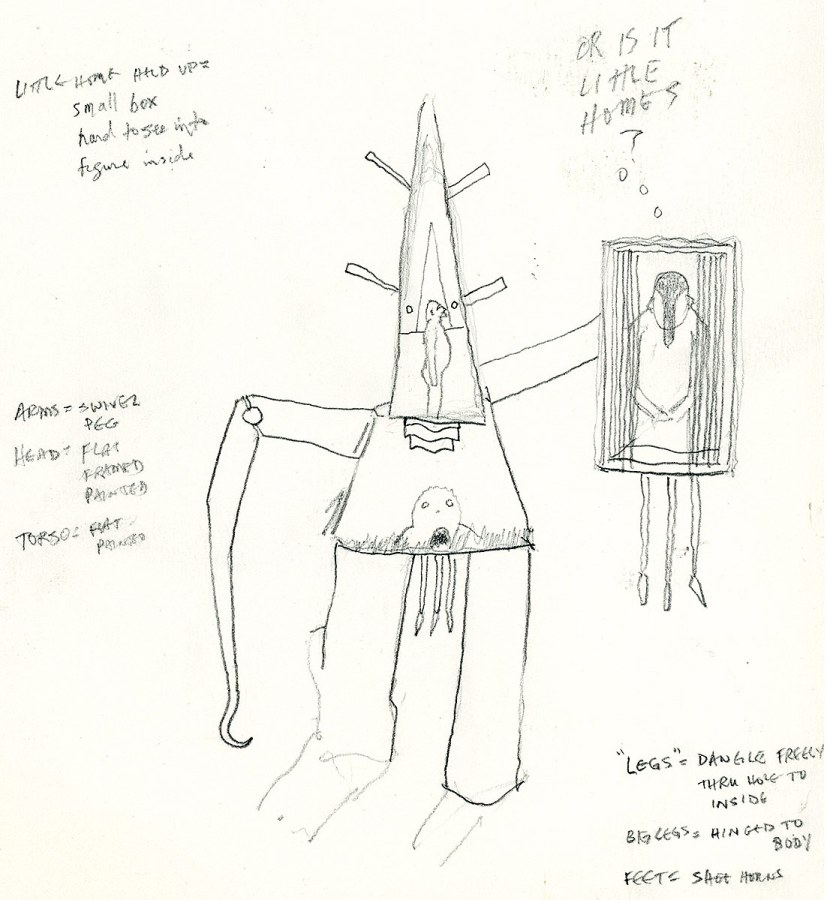 LITTLE HOME HELD UP=
small box
hard to see into
figure inside
OR IS IT
LITTLE
HOMES
?
ARMS = SWIVEL
PEG
HEAD = FLAT
FRAMED
PAINTED
TORSO = FLAT
PAINTED
"LEGS" = DANGLE FREELY
THRU HOLE TO
INSIDE
BIG LEGS = HINGED TO
BODY
FEET = HORNS